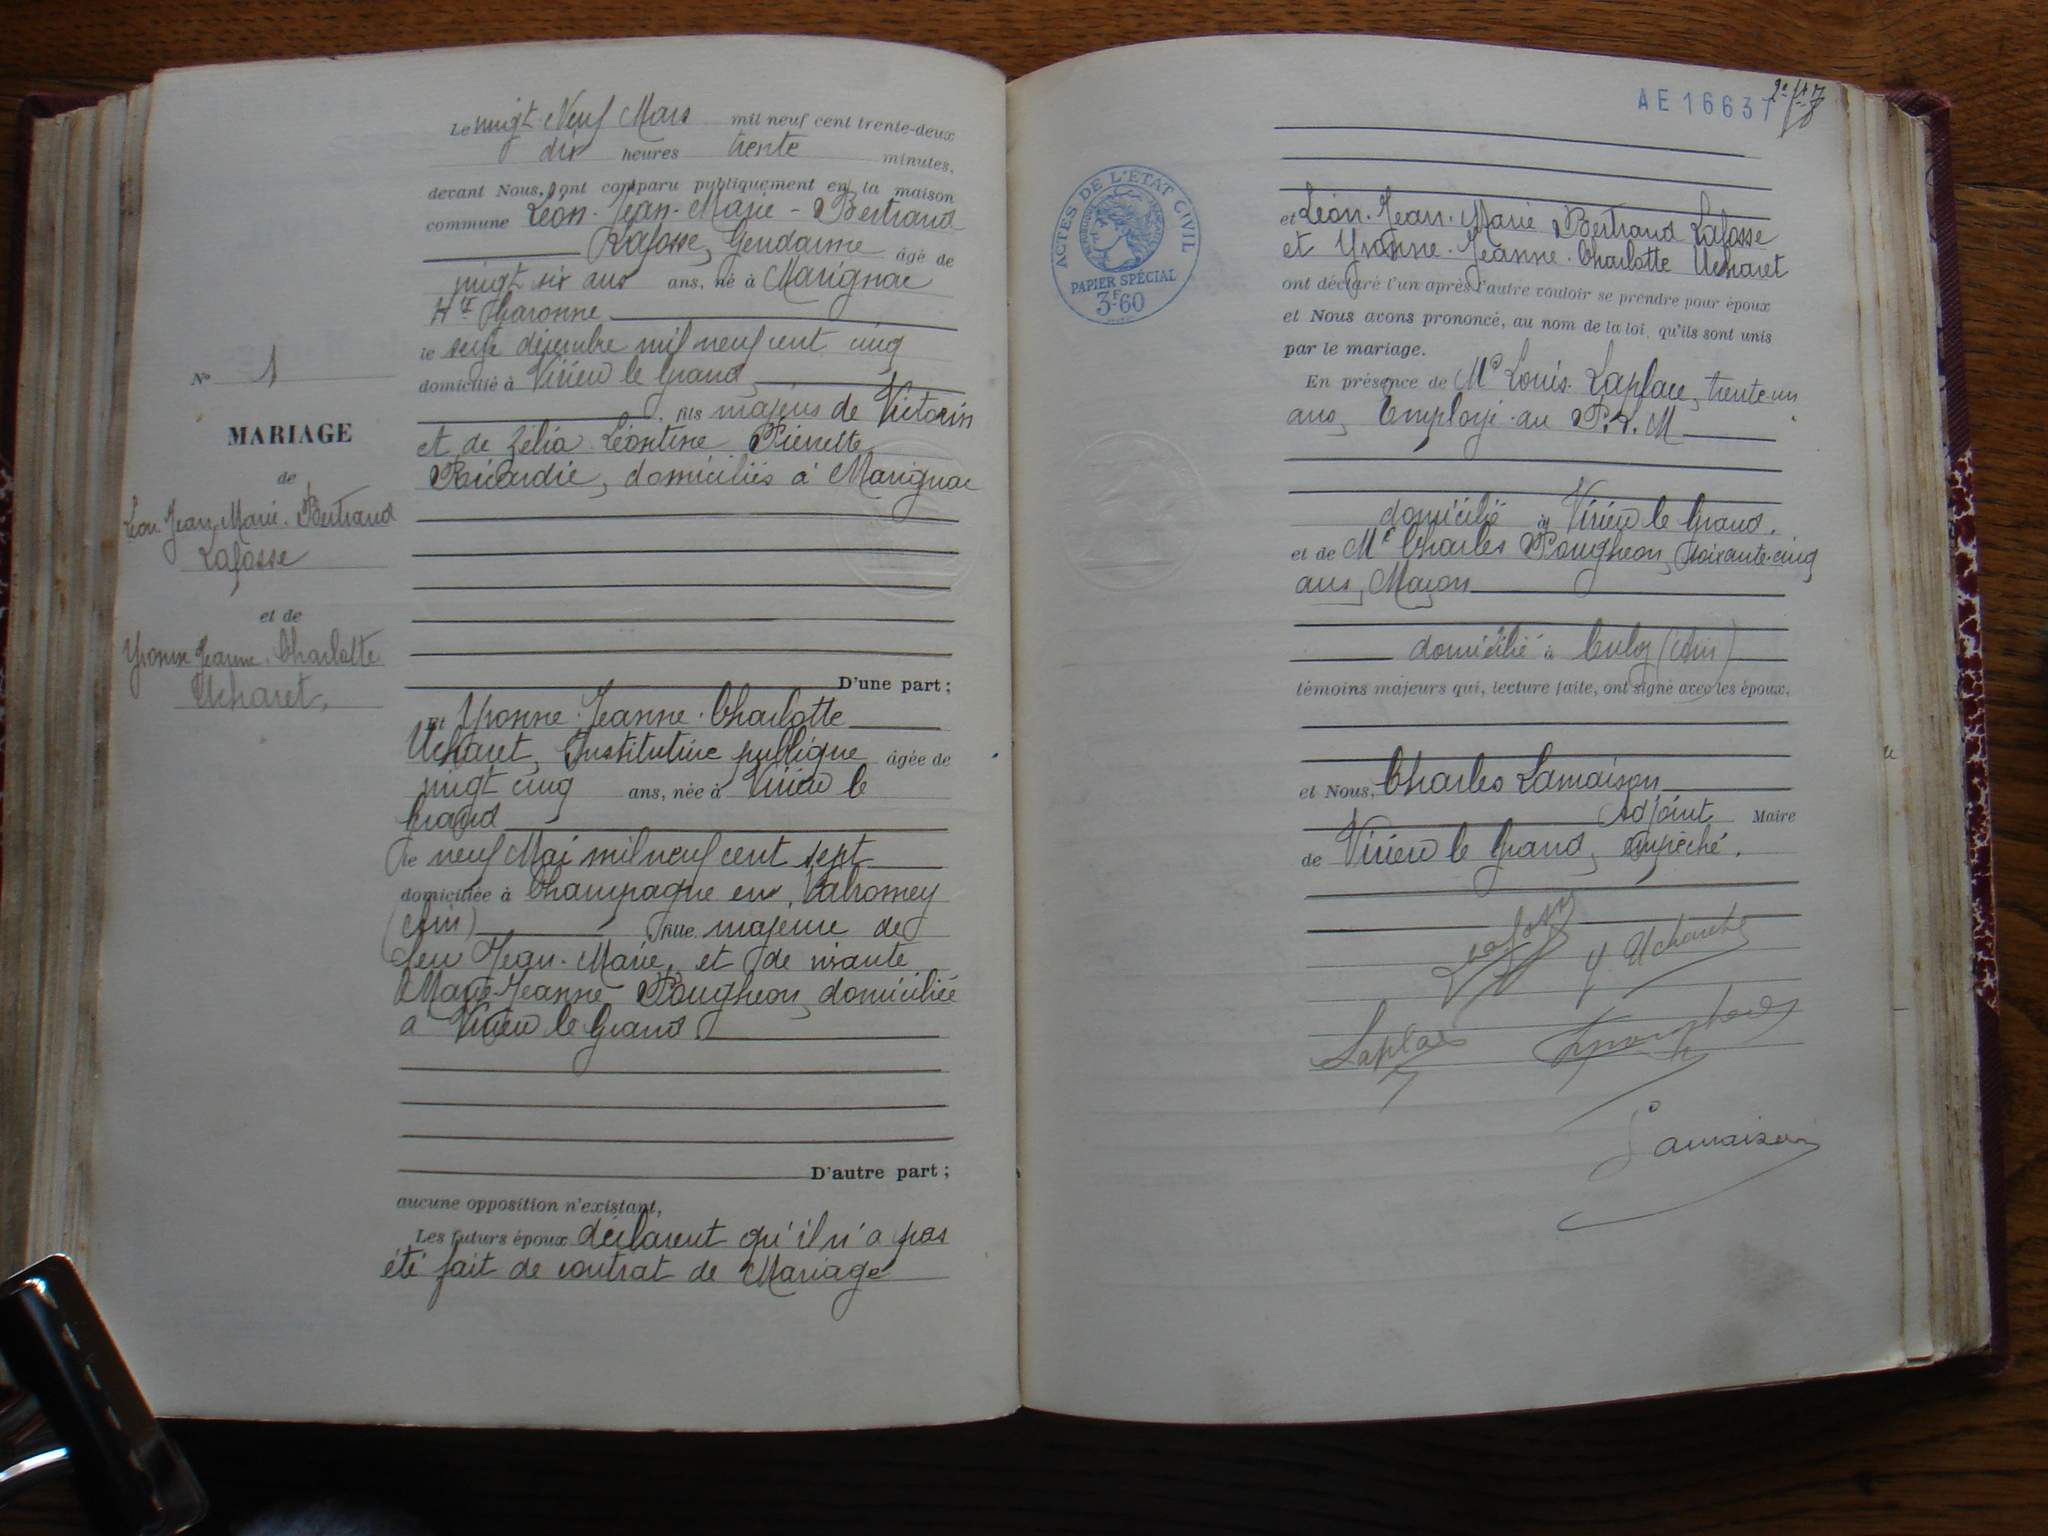 Nº 1
MARIAGE
de
Léon. Jean. Marie. Bertrand
Lafosse
et de
Yvonne Jeanne. Charlotte
Ucharet,
Le vingt Neuf Mars mil neuf cent trente-deux
dix heures trente minutes,
devant Nous, ont comparu publiquement en la maison
commune Léon. Jean. Marie - Bertrand
Lafosse, Gendarme âgé de
vingt six ans ans, né à Marignac
Hte Garonne
le seize décembre mil neuf cent cinq
domicilié à Virieu le Grand,
, fils majeur de Victorin
et de Zélia Léontine Pierrette
domiciliés à Marignac
D'une part ;
Et Yvonne. Jeanne. Charlotte
Ucharet, Institutrice publique âgée de
vingt cinq ans, née à Virieu le
Grand
le neuf Mai mil neuf cent sept
domiciliée à Champagne en Valromey
(Ain) fille majeure de
feu Jean-Marie, et de vivante
Marie-Jeanne Pougheon, domiciliée
à Virieu le Grand.
D'autre part ;
aucune opposition n'existant,
Les futurs époux déclarent qu'il n'a pas
été fait de contrat de Mariage
AE 16637
ACTES DE L'ÉTAT CIVIL
RÉPUBLIQUE FRANÇAISE
PAPIER SPÉCIAL
3F60
et Léon. Jean. Marie Bertrand Lafosse
et Yvonne. Jeanne. Charlotte Ucharet
ont déclaré l'un après l'autre vouloir se prendre pour époux
et Nous avons prononcé, au nom de la loi, qu'ils sont unis
par le mariage.
En présence de Mr Louis. Laplace, trente un
ans, Employé au P.L.M
domicilié à Virieu le Grand.
et de Mr Charles Pougheon, soixante-cinq
ans, Maçon
domicilié à Culoz (Ain)
témoins majeurs qui, lecture faite, ont signé avec les époux,
et Nous, Charles Lamaison
Adjoint Maire
de Virieu le Grand, empêché.
Lafosse Y. Ucharet
Laplace Pougheon
Lamaison